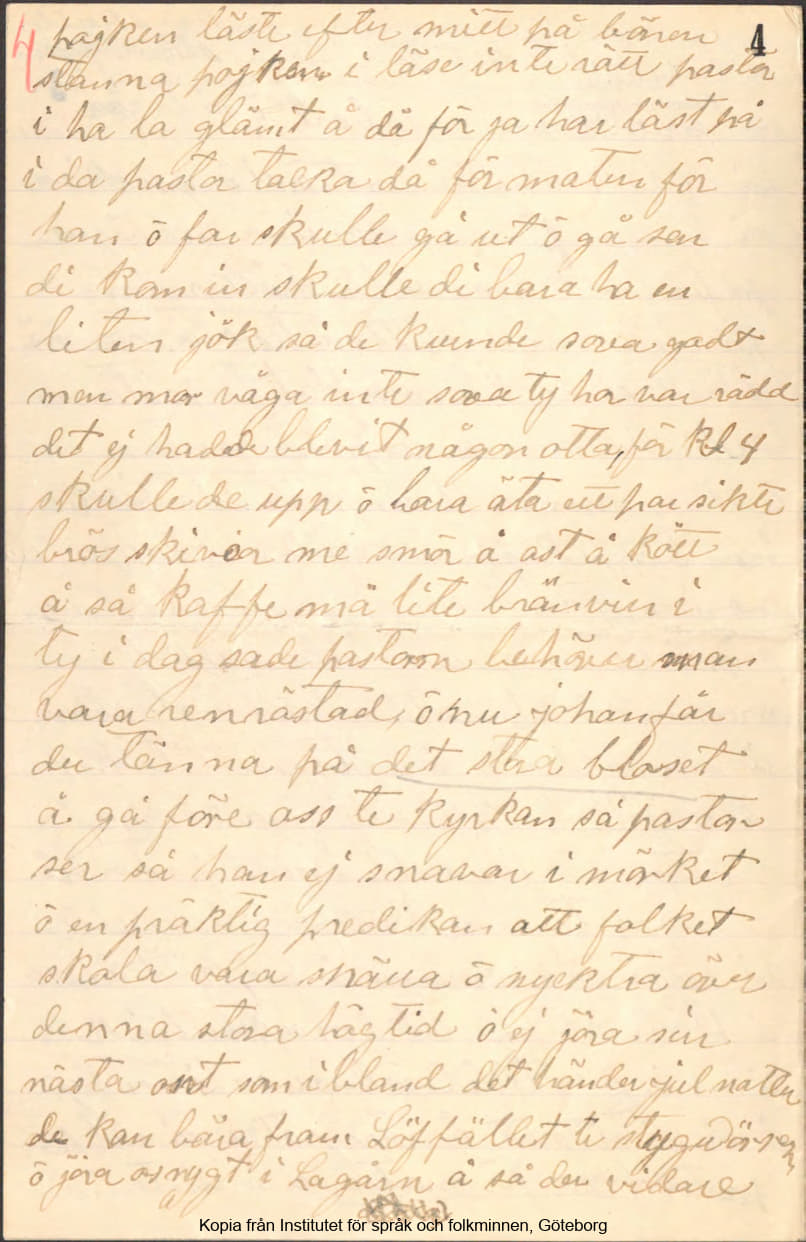 4 pojken läste efter mitt på bönen 4
stanna pojken i läse inte rätt pastor
i ha la glämt å då för ja har läst på
i da pastor tacka då för maten för
han ö far skulle gå ut ö gå sen
di kom in skulle di bara ha en
liten jök så de kunde sova godt
men mor våga inte sova ty hon var rädd
det ej hadde blevit någon otta, för Kl 4
skulle de upp ö bara äta ett par sikte
brös skivor me smör å ost å kött
å så kaffe mä lite brännvin i
ty i dag sade pastorn behöver man
vara renrästad, ö nu johan får
du tänna på det stora bloset
å gå före oss te kyrkan så pastor
ser så han ej snavar i mörket
ö en präktig predikan att folket
skola vara snälla ö nycktra över
denna stora högtid ö ej jöra sin
nästa ont som ibland det händer julnatten
de kan bära fram Löffället te
ö jöra osnygt i Lagårn å så der vidare
Kopia från Institutet för språk och folkminnen, Göteborg